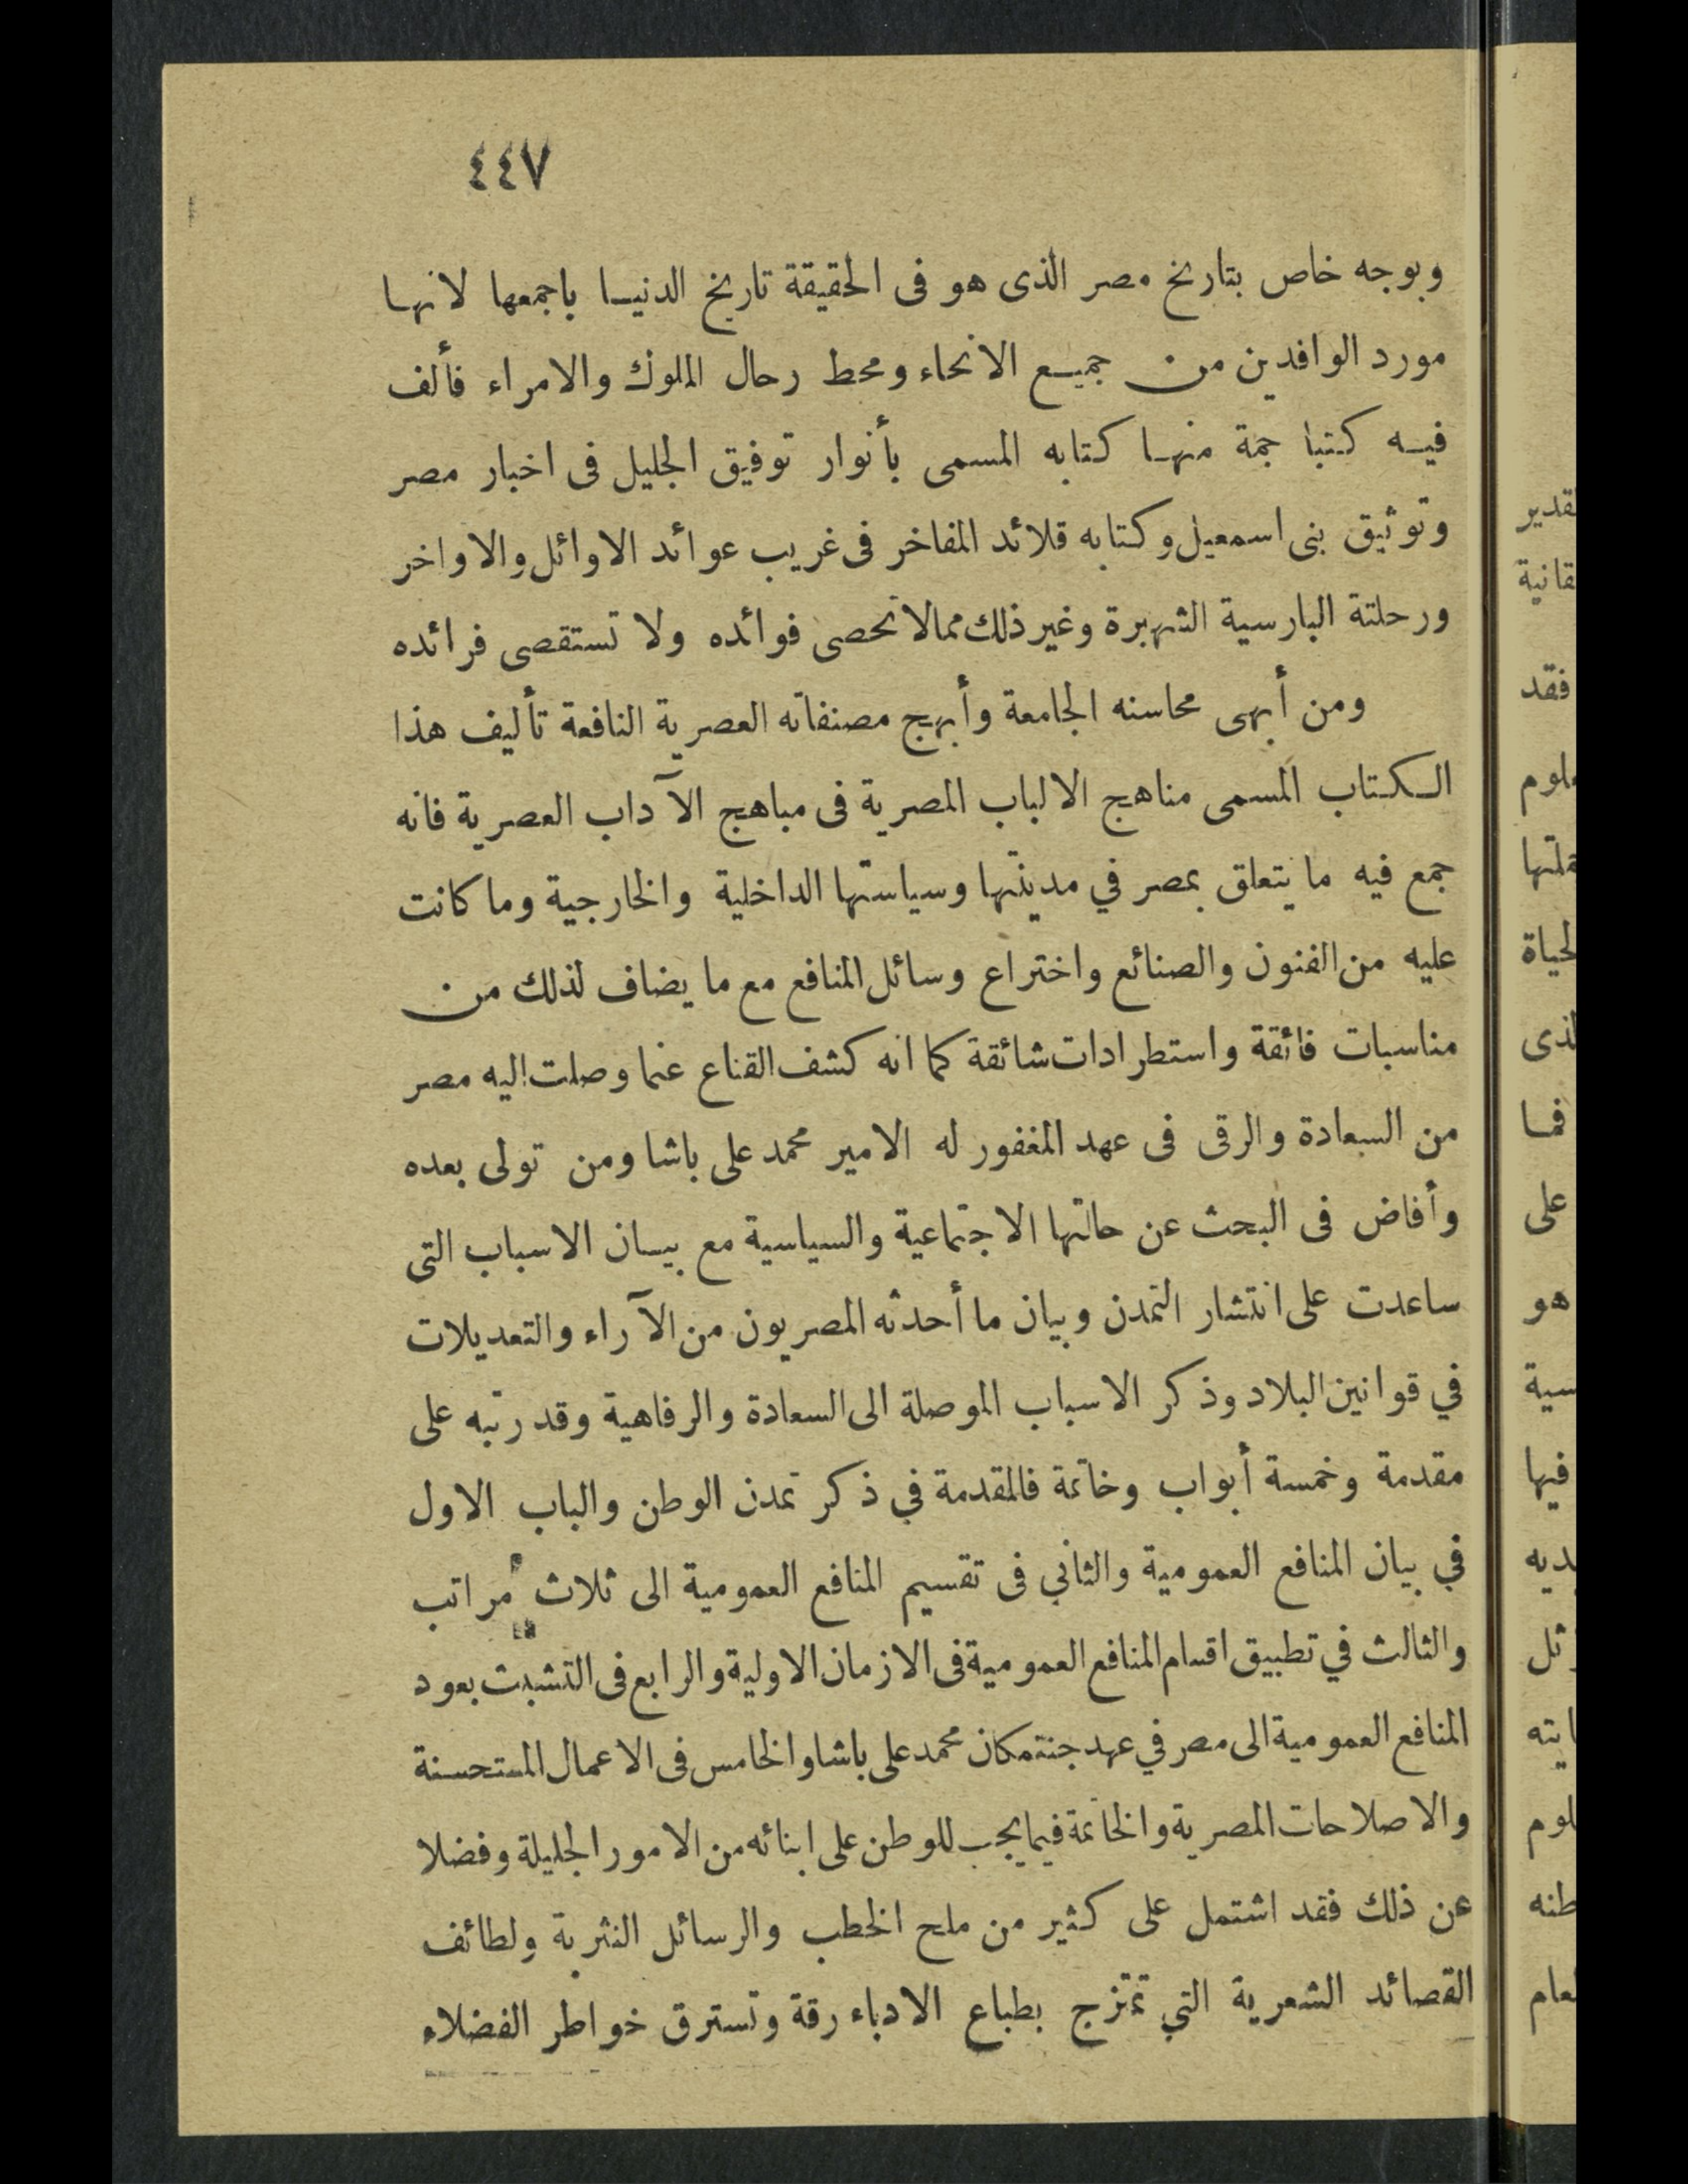 ٤٤٧
وبوجه خاص بتاريخ مصر الذى هو فى الحقيقة تاريخ الدنيا باجمعها لانها
مورد الوافدين من جميع الانحاء ومحط رحال الملوك والامراء فألف
فيه كتبا جمة منها كتابه المسمى بأنوار توفيق الجليل فى اخبار مصر
وتوثيق بنى اسمعيل وكتابه قلائد المفاخر فى غريب عوائد الاوائل والاواخر
ورحلتة البارسية الشهيرة وغير ذلك ممالا تحصى فوائده ولا تستقصى فرائده
ومن أبهى محاسنه الجامعة وأبهج مصنفاته العصرية النافعة تأليف هذا
الكتاب المسمى مناهج الالباب المصرية فى مباهج الآداب العصرية فانه
جمع فيه ما يتعلق بمصر في مدينتها وسياستها الداخلية والخارجية وما كانت
عليه من الفنون والصنائع واختراع وسائل المنافع مع ما يضاف لذلك من
مناسبات فائقة واستطرادات شائقة كما انه كشف القناع عما وصلت اليه مصر
من السعادة والرقى فى عهد المغفور له الامير محمد على باشا ومن تولى بعده
وأفاض فى البحث عن حالتها الاجتماعية والسياسية مع بيان الاسباب التى
ساعدت على انتشار التمدن وبيان ما أحدثه المصريون من الآراء والتعديلات
في قوانين البلاد وذكر الاسباب الموصلة الى السعادة والرفاهية وقد رتبه على
مقدمة وخمسة أبواب وخاتمة فالمقدمة في ذكر تمدن الوطن والباب الاول
في بيان المنافع العمومية والثاني فى تقسيم المنافع العمومية الى ثلاث مراتب
والثالث في تطبيق اقسام المنافع العمومية فى الازمان الاولية والرابع فى التشبث بعود
المنافع العمومية الى مصر في عهد جنتمكان محمد على باشا والخامس فى الاعمال المستحسنة
والاصلاحات المصرية والخاتمة فيما يجب للوطن على ابنائه من الامور الجليلة وفضلا
عن ذلك فقد اشتمل على كثير من ملح الخطب والرسائل النثرية ولطائف
القصائد الشعرية التي تمتزج بطباع الادباء رقة وتسترق خواطر الفضلاء